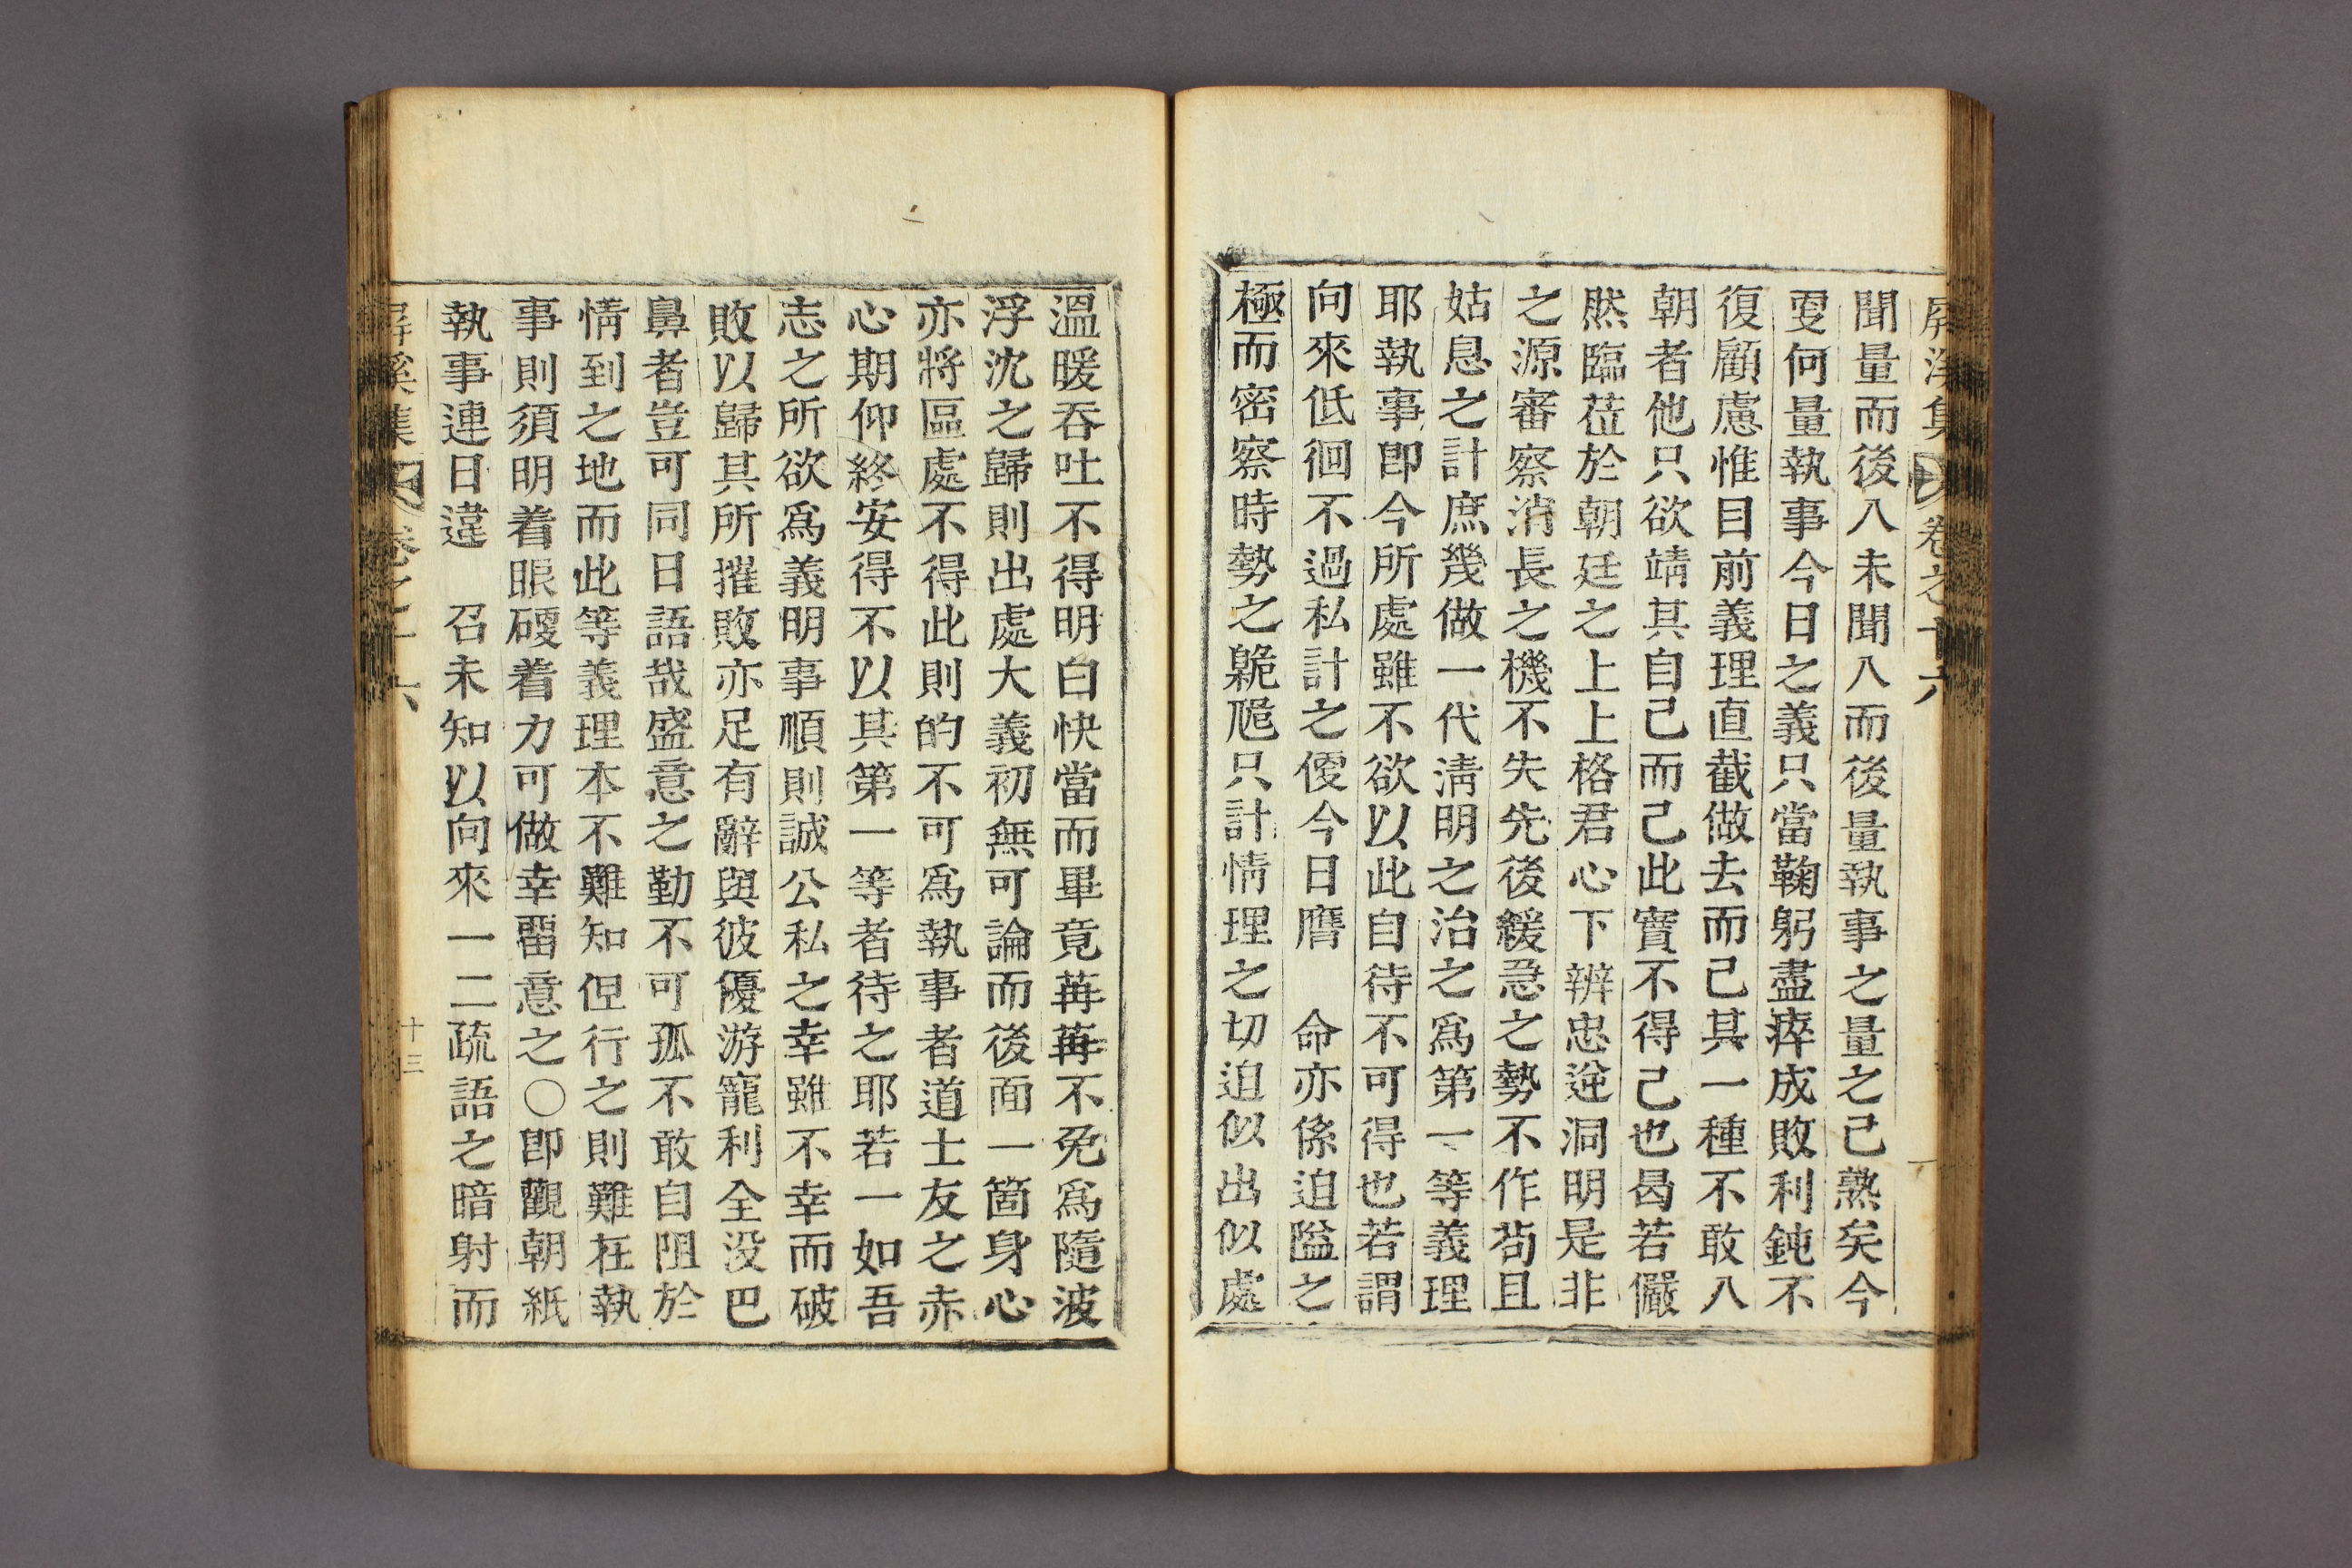 屛溪集 卷之十六
聞量而後入未聞入而後量執事之量之已熟矣今
更何量執事今日之義只當鞠躬盡瘁成敗利鈍不
復顧慮惟目前義理直截做去而已其一種不敢入
朝者他只欲靖其自己而已此實不得已也曷若儼
然臨莅於朝廷之上上格君心下辨忠逆洞明是非
之源審察消長之機不失先後緩急之勢不作苟且
姑息之計庶幾做一代淸明之治之爲第一等義理
耶執事卽今所處雖不欲以此自待不可得也若謂
向來低徊不過私計之便今日膺 命亦係迫隘之
極而密察時勢之臲卼只計情理之切迫似出似處
溫暖呑吐不得明白快當而畢竟苒苒不免爲隨波
浮沈之歸則出處大義初無可論而後面一箇身心
亦將區處不得此則的不可爲執事者道士友之赤
心期仰終安得不以其第一等者待之耶若一如吾
志之所欲爲義明事順則誠公私之幸雖不幸而破
敗以歸其所摧敗亦足有辭與彼優游寵利全没巴
鼻者豈可同日語哉盛意之勤不可孤不敢自阻於
情到之地而此等義理本不難知但行之則難在執
事則須明着眼硬着力可做幸留意之○卽觀朝紙
執事連日違 召未知以向來一二疏語之暗射而
屛溪集 卷之十六 十三